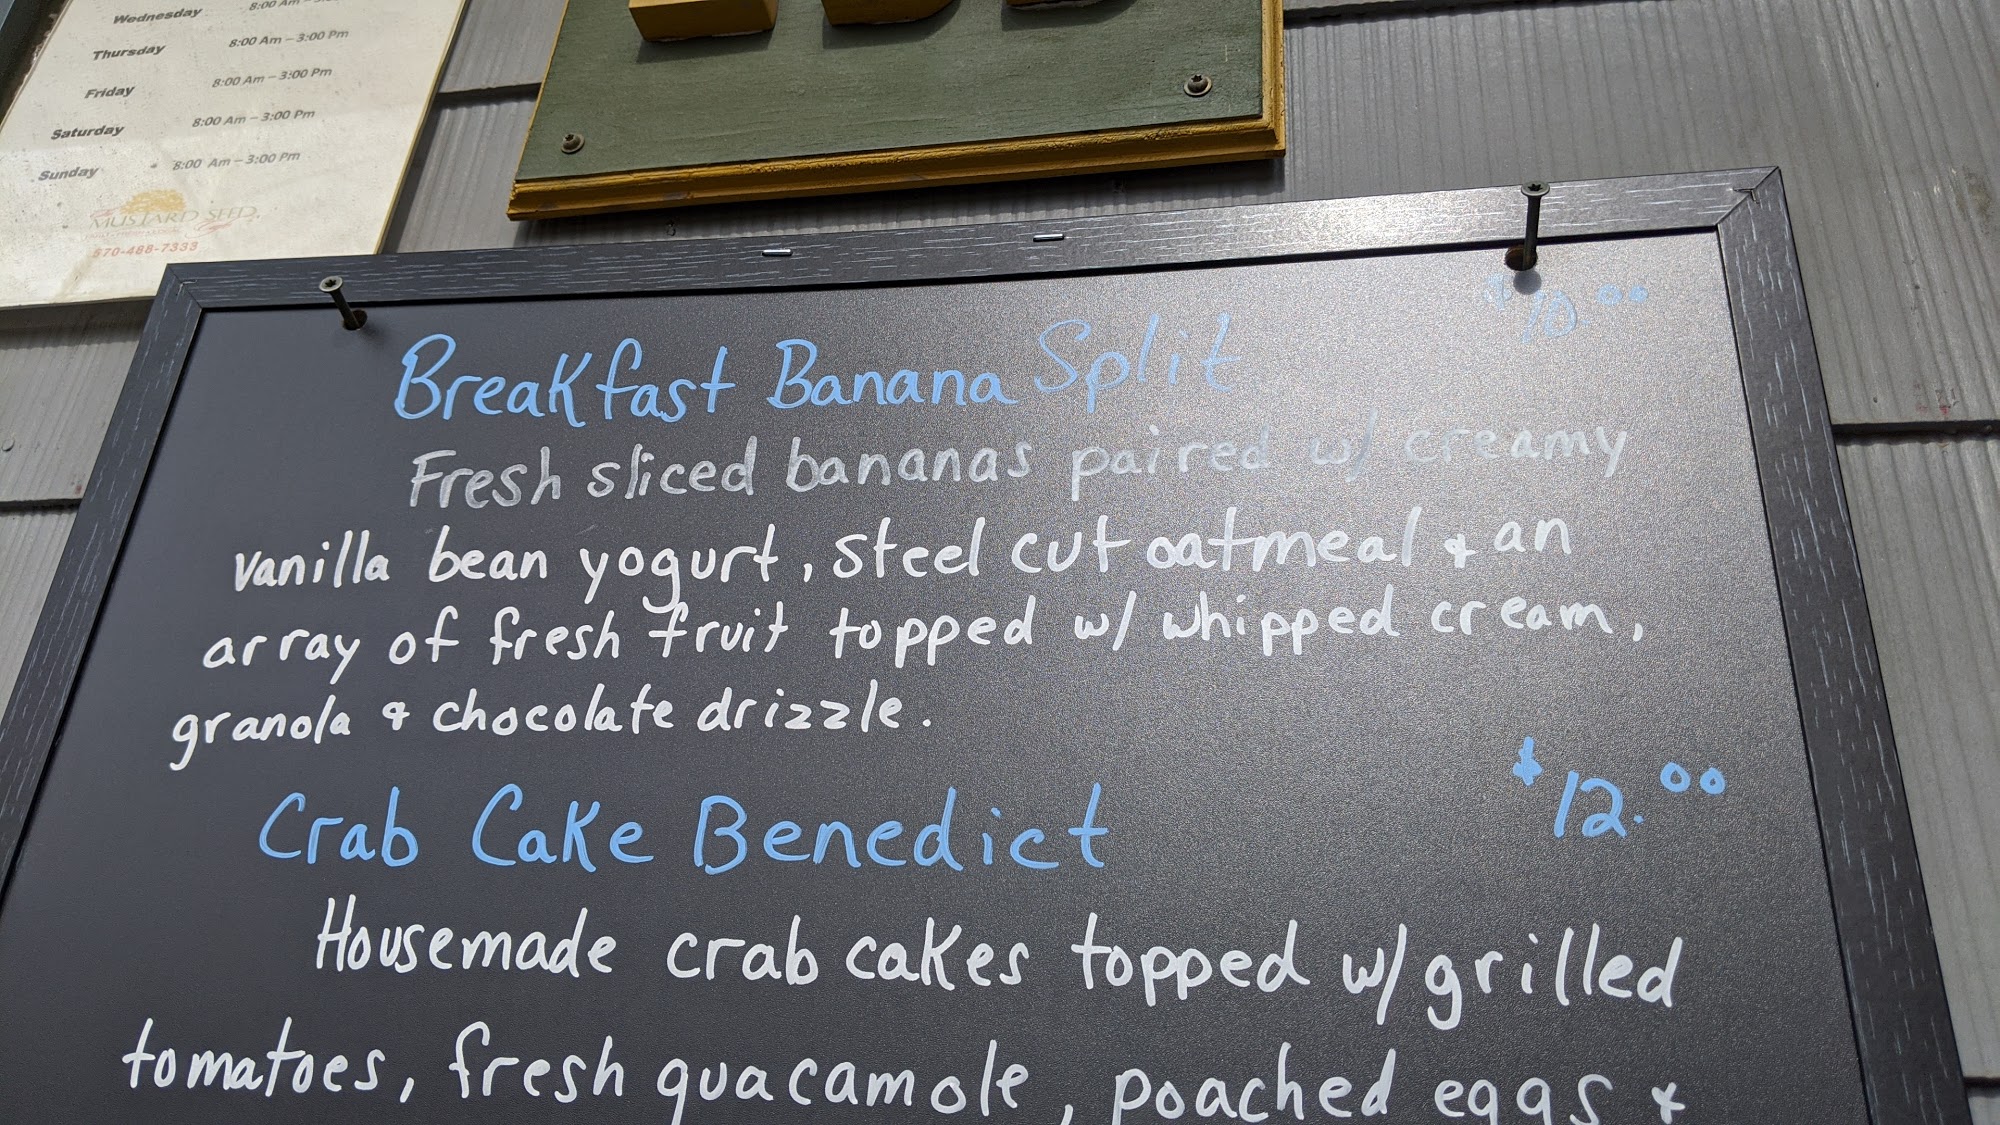 Wednesday
Thursday 8:00 Am – 3:00 Pm
Friday 8:00 Am – 3:00 Pm
Saturday 8:00 Am – 3:00 Pm
Sunday 8:00 Am – 3:00 Pm
MUSTARD SEED
570-488-7333
$10.00
Breakfast Banana Split
Fresh sliced bananas paired w/ creamy
vanilla bean yogurt, steel cut oatmeal & an
array of fresh fruit topped w/ whipped cream,
granola & chocolate drizzle.
Crab Cake Benedict $12.00
Housemade crab cakes topped w/ grilled
tomatoes, fresh guacamole, poached eggs &